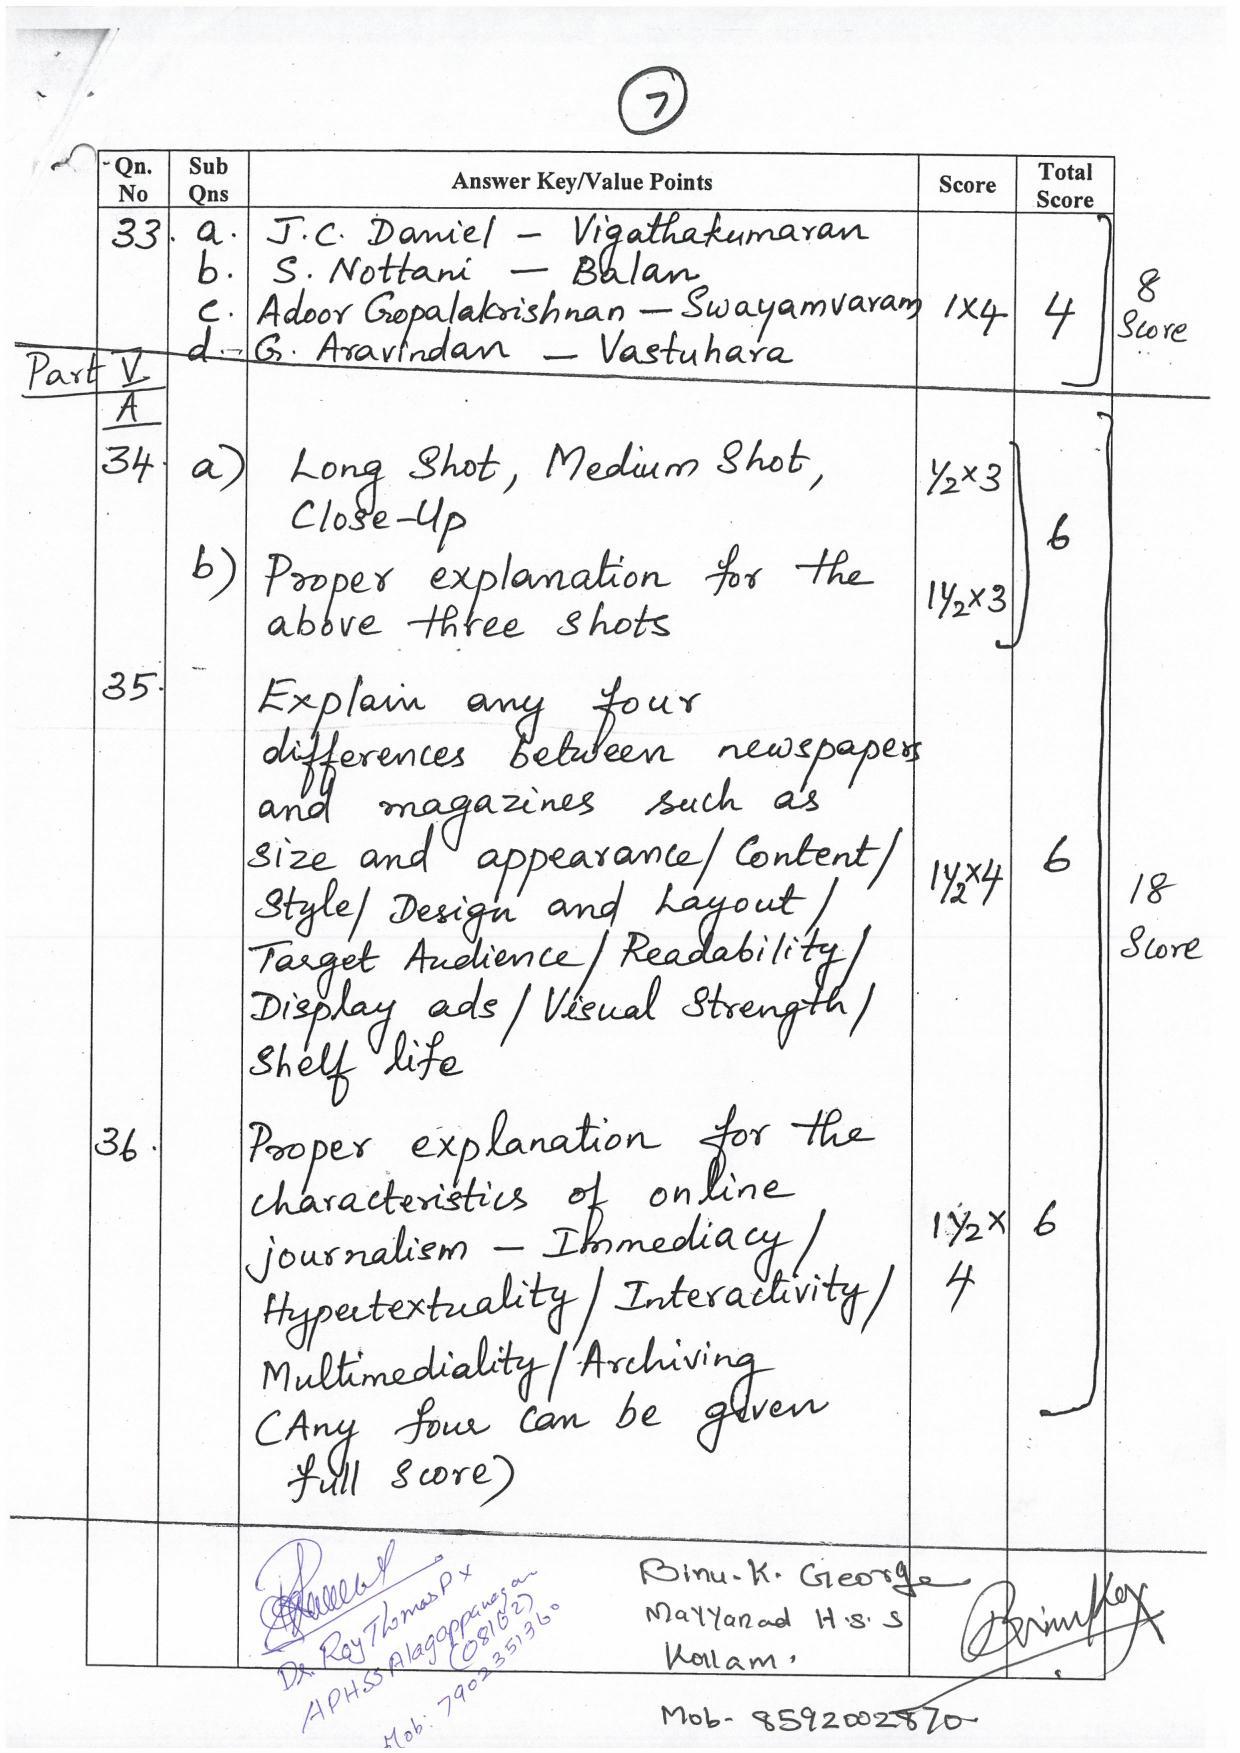 7
Qn. No Sub Qns Answer Key/Value Points Score Total Score
33. a. J.C. Daniel – Vigathakumaran
b. S. Nottani – Balan
c. Adoor Gopalakrishnan – Swayamvaram 1x4 4
d. G. Aravindan – Vastuhara
8 Score
Part V
A
34. a) Long Shot, Medium Shot, ½x3
Close-Up
6
b) Proper explanation for the 1½x3
above three shots
35. Explain any four
differences between newspapers
and magazines such as
size and appearance/ Content/ 1½x4 6
Style/ Design and Layout/
Target Audience/ Readability/
Display ads/ Visual Strength/
Shelf life
18 Score
36. Proper explanation for the
characteristics of online 1½x 6
journalism – Immediacy/
Hypertextuality/ Interactivity/ 4
Multimediality/ Archiving
(Any four can be given
full score)
Dr. Roy Thomas P X
APHSS Alagappanagar
(08162)
Binu. K. George
Mayyanad H.S.S
Kollam.
Mob- 8592002870